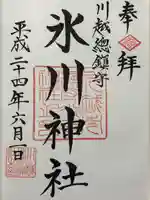 奉拝
川越総鎮守
氷川神社
平成二十四年六月一日